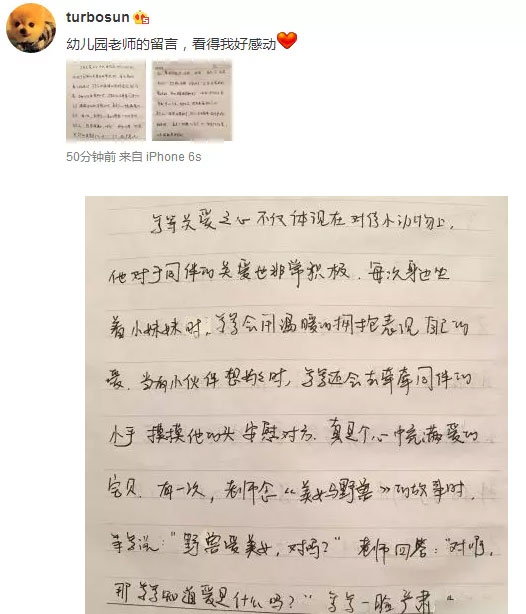 turbosun
幼儿园老师的留言，看得我好感动
50分钟前 来自 iPhone 6s
等等关爱之心不仅体现在对待小动物上，
他对于同伴的关爱也非常积极．每次身边坐
着小妹妹时，等等会用温暖的拥抱表现自己的
爱．当有小伙伴想妈妈时，等等还会去牵牵同伴的
小手 摸摸他的头 安慰对方．真是个心中充满爱的
宝贝．有一次，老师念《美女与野兽》的故事时．
等等说："野兽爱美女，对吗？" 老师回答："对啊，
那等等知道爱是什么吗？" 等等一脸严肃